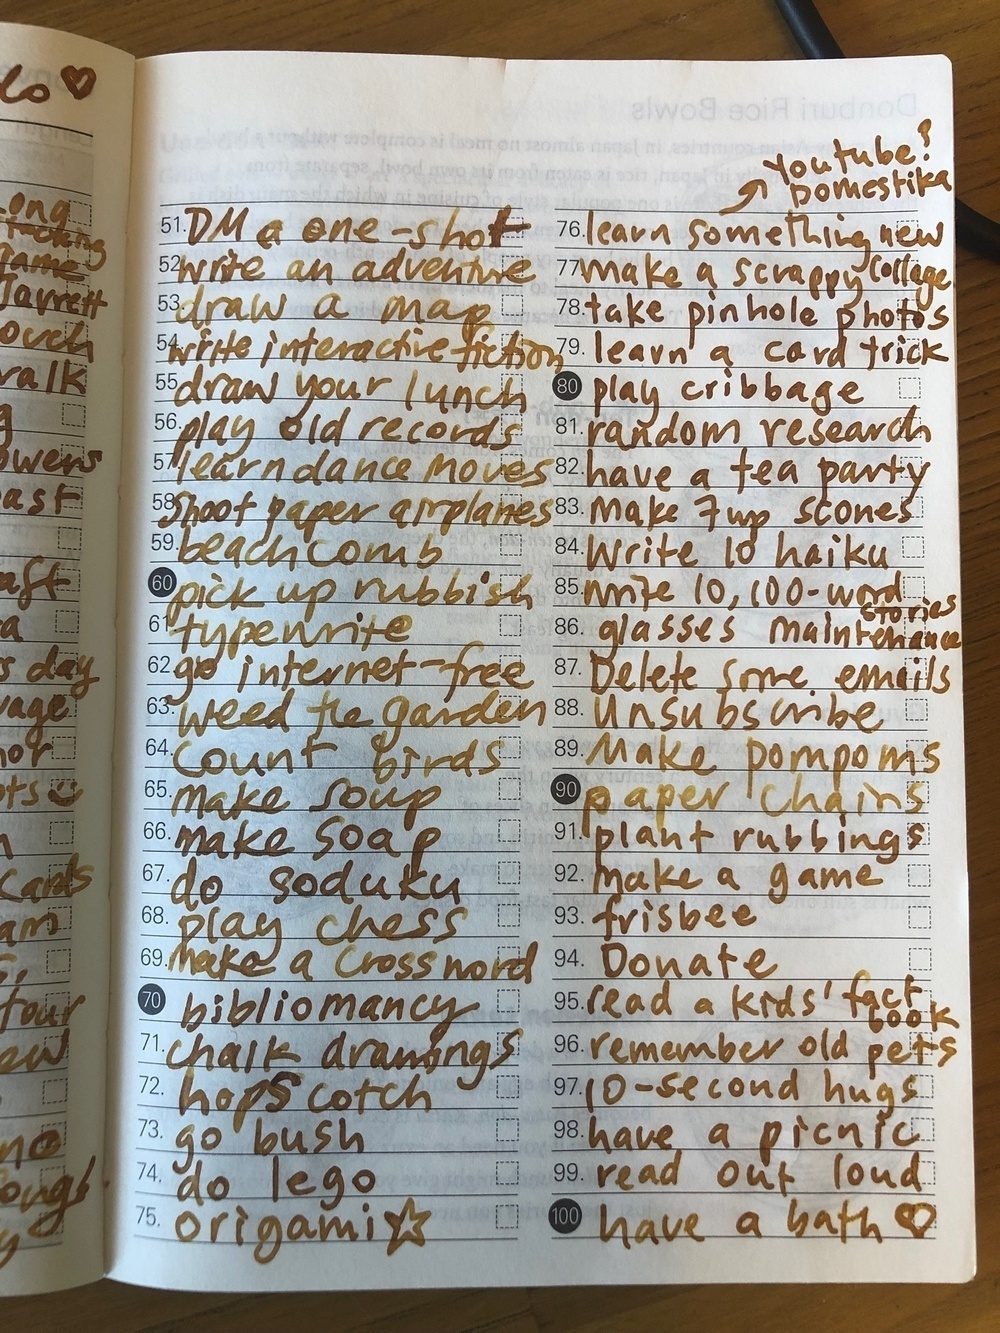 lo ♡
ong
tacking
game
Jarrett
walk
g
owers
past
aft
a
s day
vage
nor
ots
cards
am
s,
four
ew
ough
y
Donburi Rice Bowls
Youtube?
Domestika
51. DM a one-shot
52. write an adventure
53. draw a map
54. write interactive fiction
55. draw your lunch
56. play old records
57. learn dance moves
58. Shoot paper airplanes
59. beachcomb
60 pick up rubbish
61. typewrite
62. go internet-free
63. weed the garden
64. count birds
65. make soup
66. make soap
67. do soduku
68. play chess
69. make a crossword
70 bibliomancy
71. chalk drawings
72. hopscotch
73. go bush
74. do lego
75. origami ☆
76. learn something new
77. make a scrappy collage
78. take pinhole photos
79. learn a card trick
80 play cribbage
81. random research
82. have a tea party
83. Make 7up scones
84. Write 10 haiku
85. Write 10, 100-word stories
86. glasses maintenance
87. Delete some emails
88. Unsubscribe
89. Make pompoms
90 paper chains
91. plant rubbings
92. make a game
93. frisbee
94. Donate
95. read a kids' fact book
96. remember old pets
97. 10-second hugs
98. have a picnic
99. read out loud
100 have a bath ♡